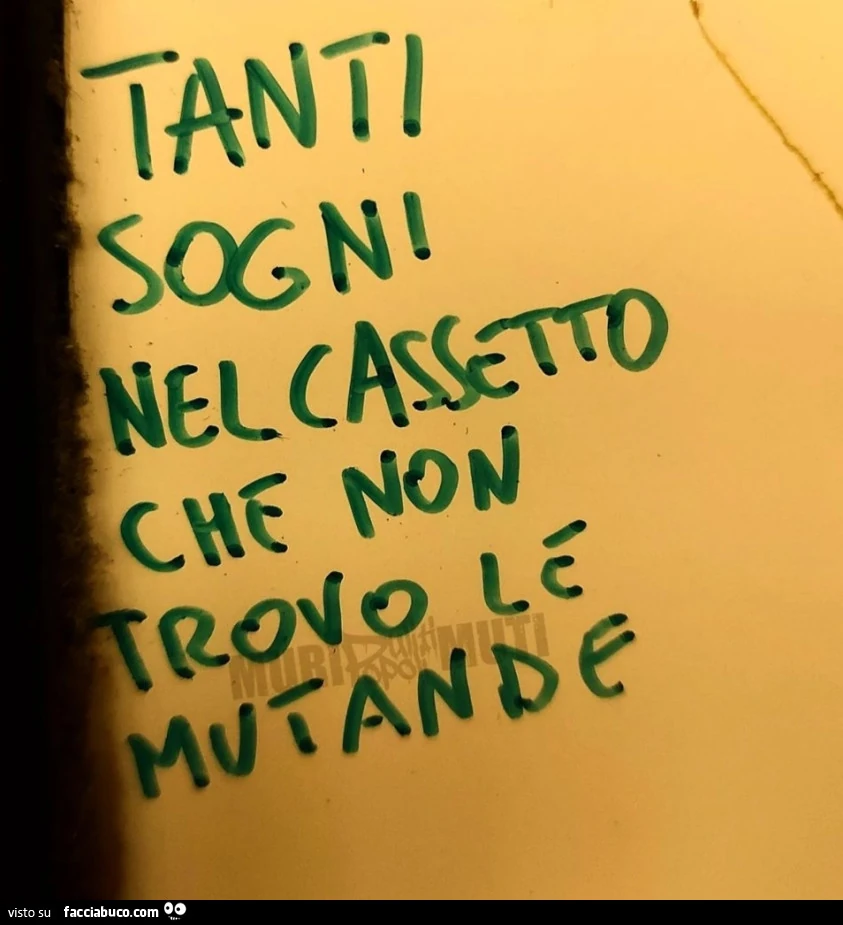 TANTI
SOGNI
NEL CASSETTO
CHE NON
TROVO LE
MUTANDE
MURI PULITI POPOLI MUTI
visto su facciabuco.com